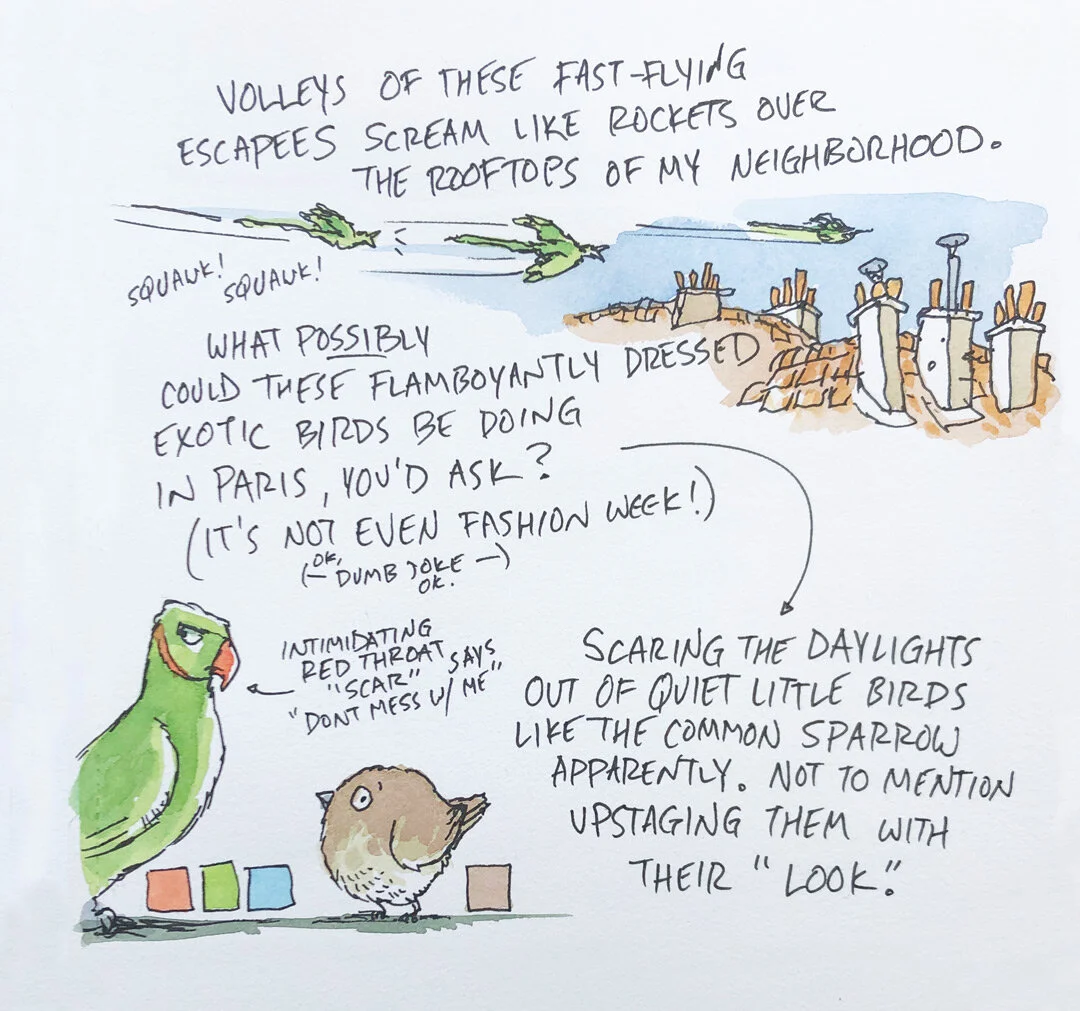 VOLLEYS OF THESE FAST-FLYING
ESCAPEES SCREAM LIKE ROCKETS OVER
THE ROOFTOPS OF MY NEIGHBORHOOD.
SQUAWK!
SQUAWK!
WHAT POSSIBLY
COULD THESE FLAMBOYANTLY DRESSED
EXOTIC BIRDS BE DOING
IN PARIS, YOU'D ASK?
(IT'S NOT EVEN FASHION WEEK!)
OK,
(— DUMB JOKE —)
OK.
INTIMIDATING
RED THROAT
"SCAR" SAYS
"DONT MESS W/ ME"
SCARING THE DAYLIGHTS
OUT OF QUIET LITTLE BIRDS
LIKE THE COMMON SPARROW
APPARENTLY. NOT TO MENTION
UPSTAGING THEM WITH
THEIR "LOOK."